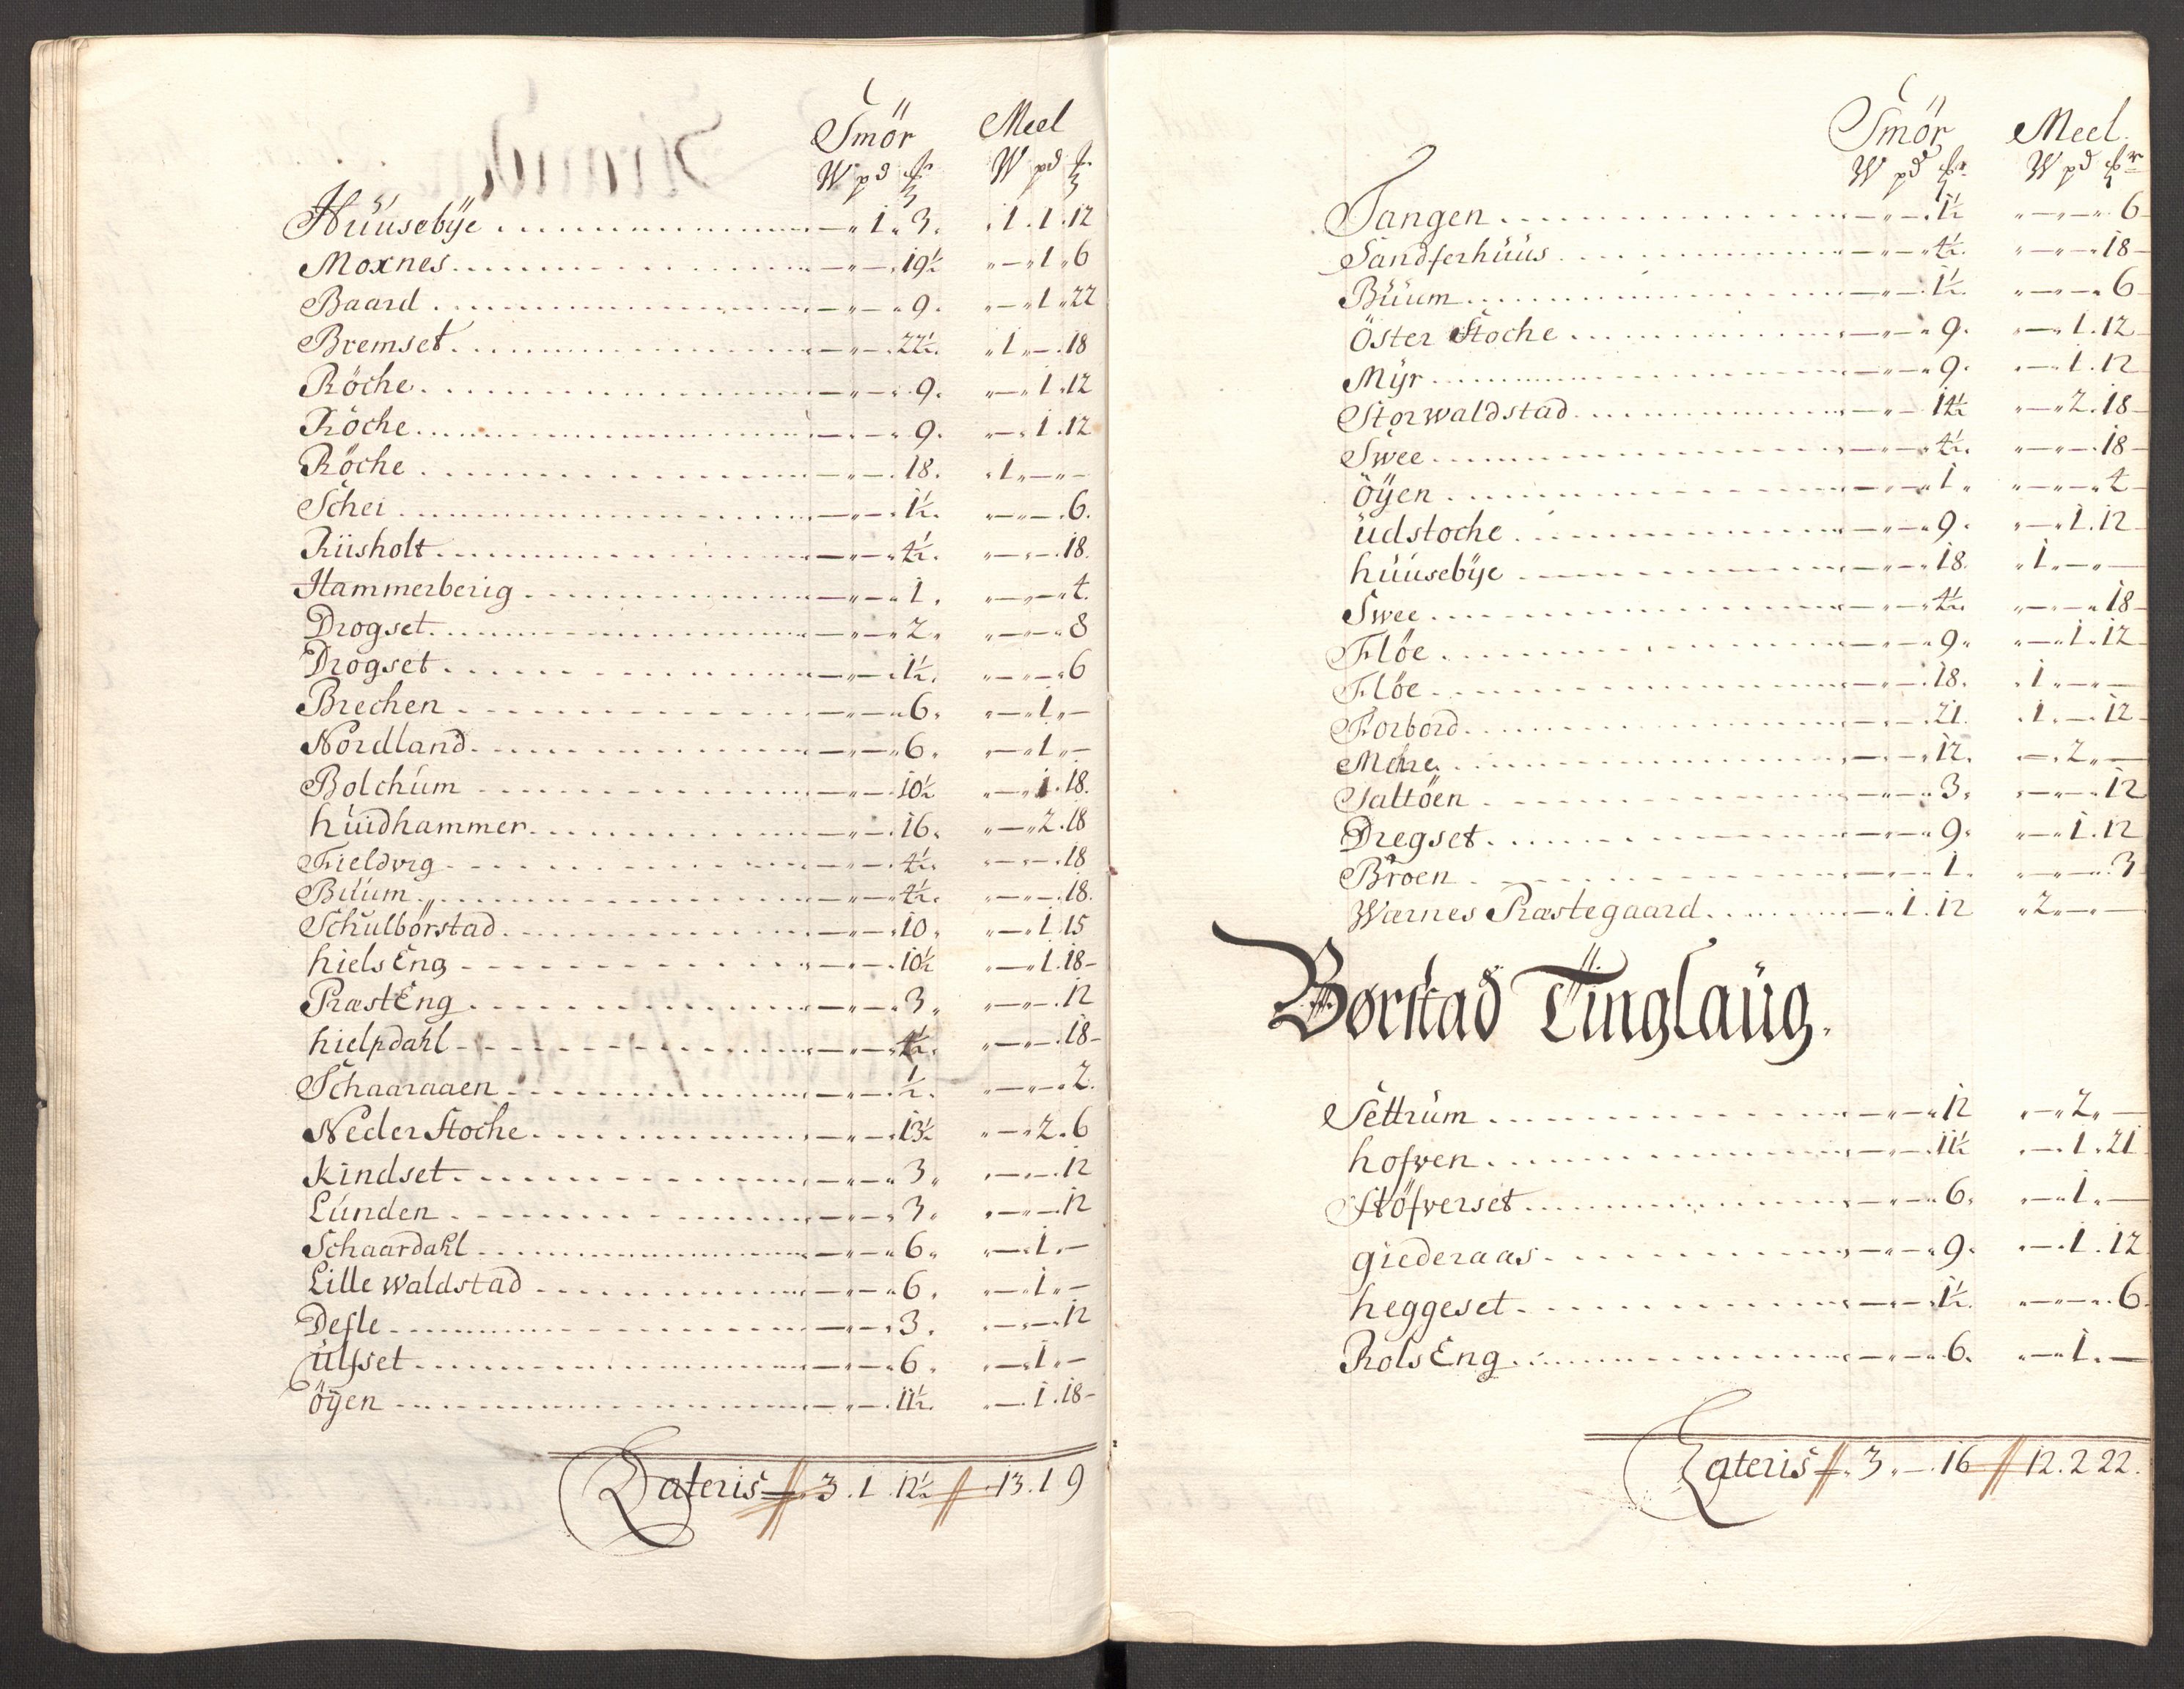 Smör Meel
W pd W pd
Huusebÿe — „ 1 „ 3 „ 1 . 1 . 12
Moxnes — „ — „ 19½ „ — „ 1 „ 6
Baard — „ — „ 9 . „ — „ 1 „ 22
Bremset — „ — . 22½ . „ 1 „ — . 18
Röche — „ — „ 9 . „ — „ 1 . 12
Röche — „ — „ 9 . „ — „ 1 . 12
Röche — „ — . 18 . „ 1 „ — „ —
Schei — „ — „ 1½ . „ — „ — . 6 .
Riisholt — „ — „ 4½ . „ — „ — . 18 .
Hammerberig — „ — „ 1 . „ — „ — „ 4 .
Drogset — „ — „ 2 . „ — „ — „ 8
Drogset — „ — „ 1½ . „ — „ — „ 6
Brechen — „ — „ 6 . „ — „ 1 „ —
Nordland — „ — „ 6 . „ — „ 1 „ —
Bolchum — „ — . 10½ „ — „ 1 . 18 .
huidhammer — „ — . 16 . „ — „ 2 . 18
Fieldvig — „ — „ 4½ . „ — „ — . 18
Buum — „ — „ 4½ . „ — „ — . 18 .
Schulbörstad — „ — „ 10 . „ — „ 1 . 15
hiels Eng — „ — . 10½ „ — „ 1 . 18 –
Præst Eng — „ — „ 3 „ „ — „ — . 12
hielpdahl — „ — „ 4½ . „ — „ — . 18 –
Schaaraaen — „ — „ ½ . „ — „ — „ 2 .
Neder Stoche — „ — „ 13½ „ — „ 2 . 6
kindset — „ — „ 3 „ „ — „ — . 12
Lunden — „ — „ 3 . „ — „ — . 12
Schaardahl — „ — „ 6 „ „ — „ 1 . —
Lille waldstad — „ — „ 6 . „ — „ 1 „ —
Defle — „ — „ 3 . „ — „ — . 12
ülfset — „ — „ 6 . „ — „ 1 „ —
öÿen — „ — . 11½ . „ — . 1 . 18 –
Lateris 3 . 1 . 12½ 13 . 1 9
Smör Meel
W pd W pd
Tangen — „ — . 1½ „ — „ — „ 6
Sandferhuus — „ — „ 4½ . „ — „ — „ 18 –
Buum — „ — . 1½ . „ — „ — „ 6
Öster Stoche — „ — „ 9 . „ — „ 1 . 12
Mÿr — „ — „ 9 . „ — . 1 . 12
Storwaldstad — „ — 14½ „ — „ 2 . 18 –
Swee — „ — „ 4½ . „ — „ — . 18 –
öÿen — „ — „ 1 „ „ — „ — „ 4
üdstoche — „ — „ 9 . „ — „ 1 . 12
huusebÿe — „ — . 18 . „ 1 . — „ —
Swee — „ — „ 4½ . „ — „ — „ 18 –
Flöe — „ — „ 9 „ „ — „ 1 . 12
Flöe — „ — . 18 . . 1 „ — „ —
Forbord — „ — . 21 . . 1 . — . 12
— „ — „ 12 . „ — . 2 „ —
Saltöen — „ — „ 3 „ „ — „ — . 12
Dregset — „ — „ 9 . „ — „ 1 . 12
Broen — „ — . 1 . „ — „ — „ 3
Wærnes Præstegaard — „ 1 . 12 „ 2 „ — „ —
Borstad Tinglaüg.
Settrum — „ — „ 12 „ — „ 2 „ —
hofven — „ — „ 11½ „ — . 1 . 21
Stöfverset — „ — „ 6 . „ — „ 1 . —
giederaas — „ — „ 9 . „ — . 1 . 12
heggeset — „ — „ 1½ . „ — „ — „ 6
Rols Eng — „ — „ 6 . „ — „ 1 . —
Lateris 3 „ — . 16 12 . 2 22 .